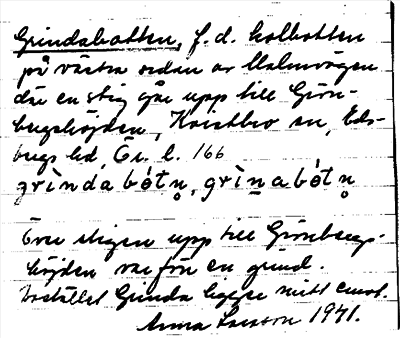 Grindabotten, f. d. kolbotten
på västra sidan av Malmvägen
där en stig går upp till Grön-
bergshöjden, Kristbro sn, Eds-
bergs hd, Ör. l. 166
grìndabót̀n̥, grìn̲abót̀n̥
Över stigen upp till Grönbergs-
höjden var förr en grind.
Stället Grinda ligger mitt emot.
Anna Larsson 1941.